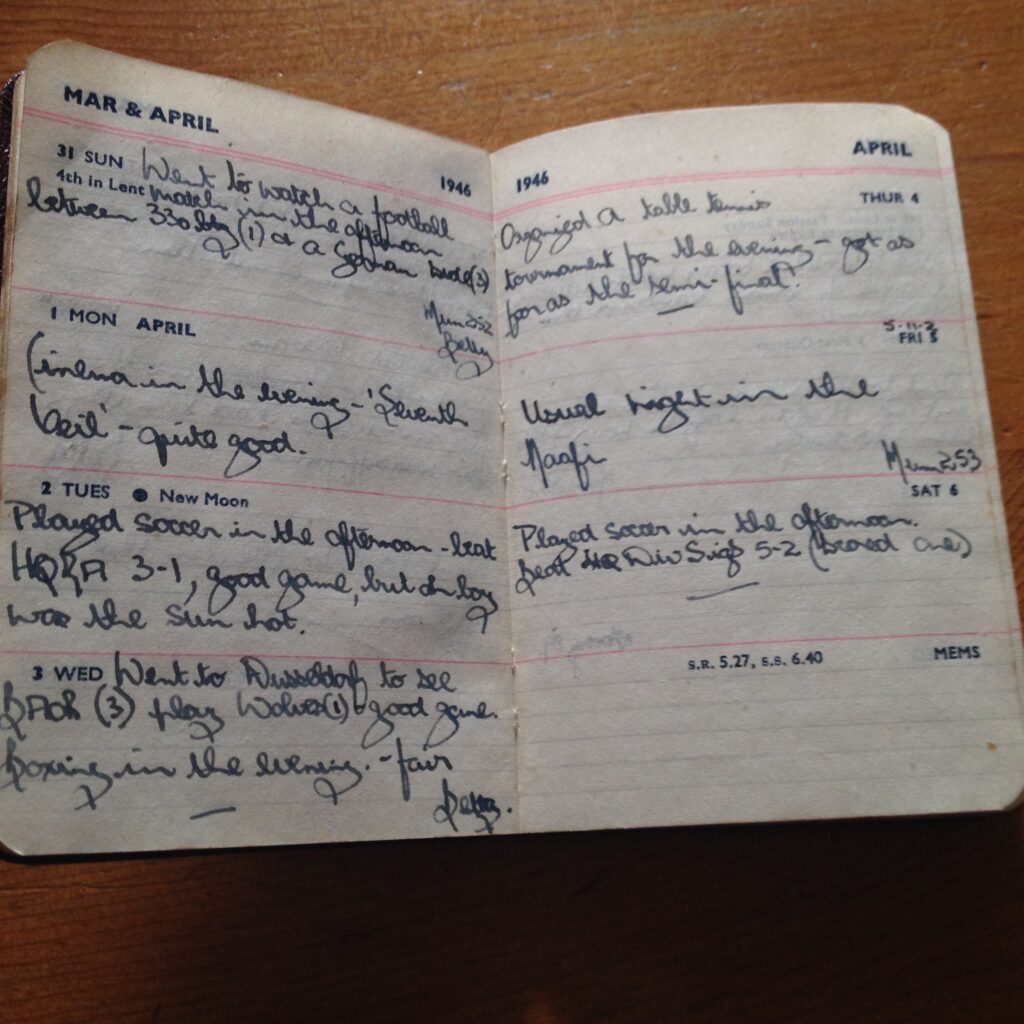 MAR & APRIL
1946
31 SUN Went to watch a football
4th in Lent match in the afternoon
between 330 bty (1) & a German side (3)
Mum 252
Betty
1 MON APRIL
Cinema in the evening - 'Seventh
Veil' - quite good.
2 TUES New Moon
Played soccer in the afternoon - beat
HQRA 3-1, good game, but oh boy
was the sun hot.
3 WED Went to Dusseldorf to see
BAOR (3) play Wolves (1) - good game.
Boxing in the evening. - fair
Betty.
1946
APRIL
THUR 4
Organized a table tennis
tournament for the evening - got as
far as the semi-final!
FRI 5
Usual night in the
Naafi
Mum 253
SAT 6
Played soccer in the afternoon.
Beat HQ Div Sigs 5-2 (scored one)
S.R. 5.27, S.S. 6.40
MEMS